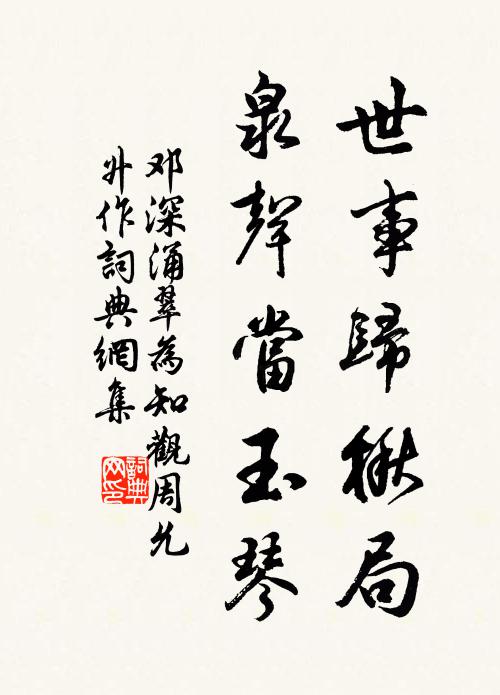 世事歸楸局
泉聲當玉琴
邓深涌翠為知觀周允
升作詞典網集
詞典
网印